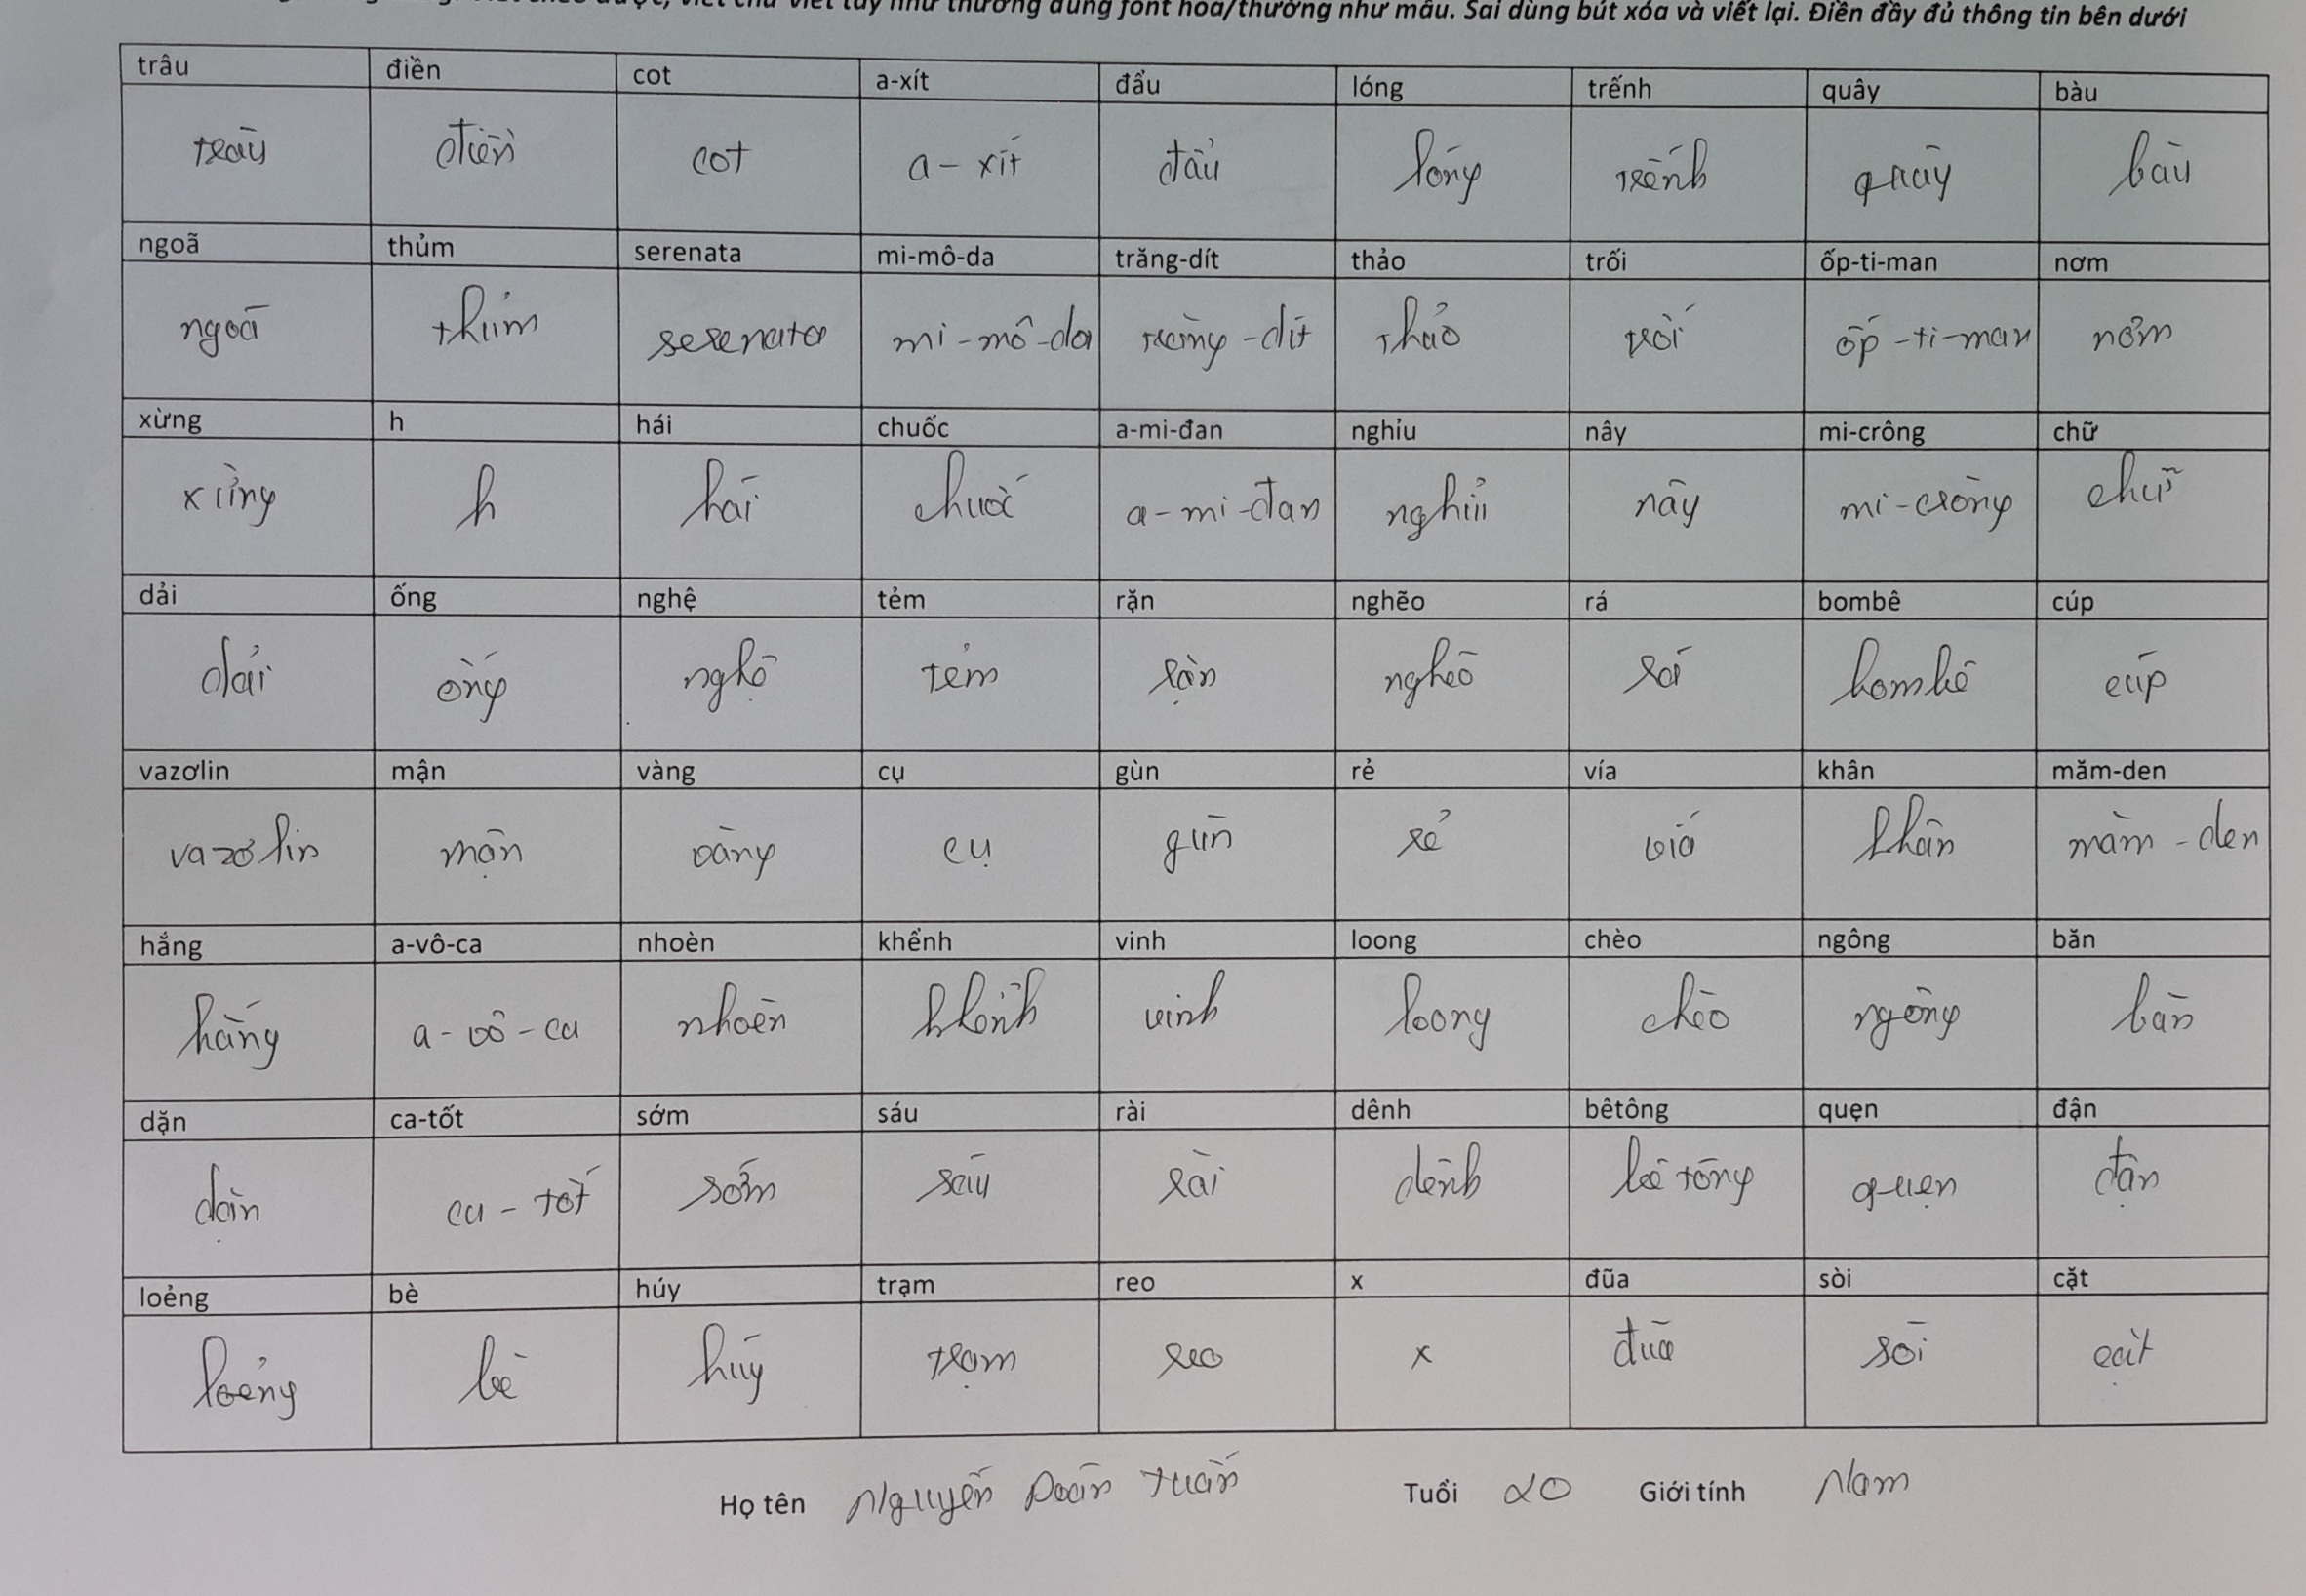 viết chữ viết tay như thường dùng font hoa/thường như mẫu. Sai dùng bút xóa và viết lại. Điền đầy đủ thông tin bên dưới
trâu điền cot a-xít đẩu lóng trếnh quây bàu
trâu điền cot a-xít đẩu lóng trếnh quây bàu
ngoã thủm serenata mi-mô-da trăng-dít thảo trối ốp-ti-man nơm
ngoã thủm serenata mi-mô-da trăng-dít thảo trối ốp-ti-man nơm
xừng h hái chuốc a-mi-đan nghỉu nây mi-crông chữ
xừng h hái chuốc a-mi-đan nghỉu nây mi-crông chữ
dải ống nghệ tẻm rặn nghẽo rá bombê cúp
dải ống nghệ tẻm rặn nghẽo rá bombê cúp
vazơlin mận vàng cụ gùn rẻ vía khân măm-den
vazơlin mận vàng cụ gùn rẻ vía khân măm-den
hắng a-vô-ca nhoèn khểnh vinh loong chèo ngông băn
hắng a-vô-ca nhoèn khểnh vinh loong chèo ngông băn
dặn ca-tốt sớm sáu rài dênh bêtông quẹn đận
dặn ca-tốt sớm sáu rài dênh bêtông quẹn đận
loẻng bè húy trạm reo x đũa sòi cặt
loẻng bè húy trạm reo x đũa sòi cặt
Họ tên Nguyễn Doãn Tuấn Tuổi 20 Giới tính Nam